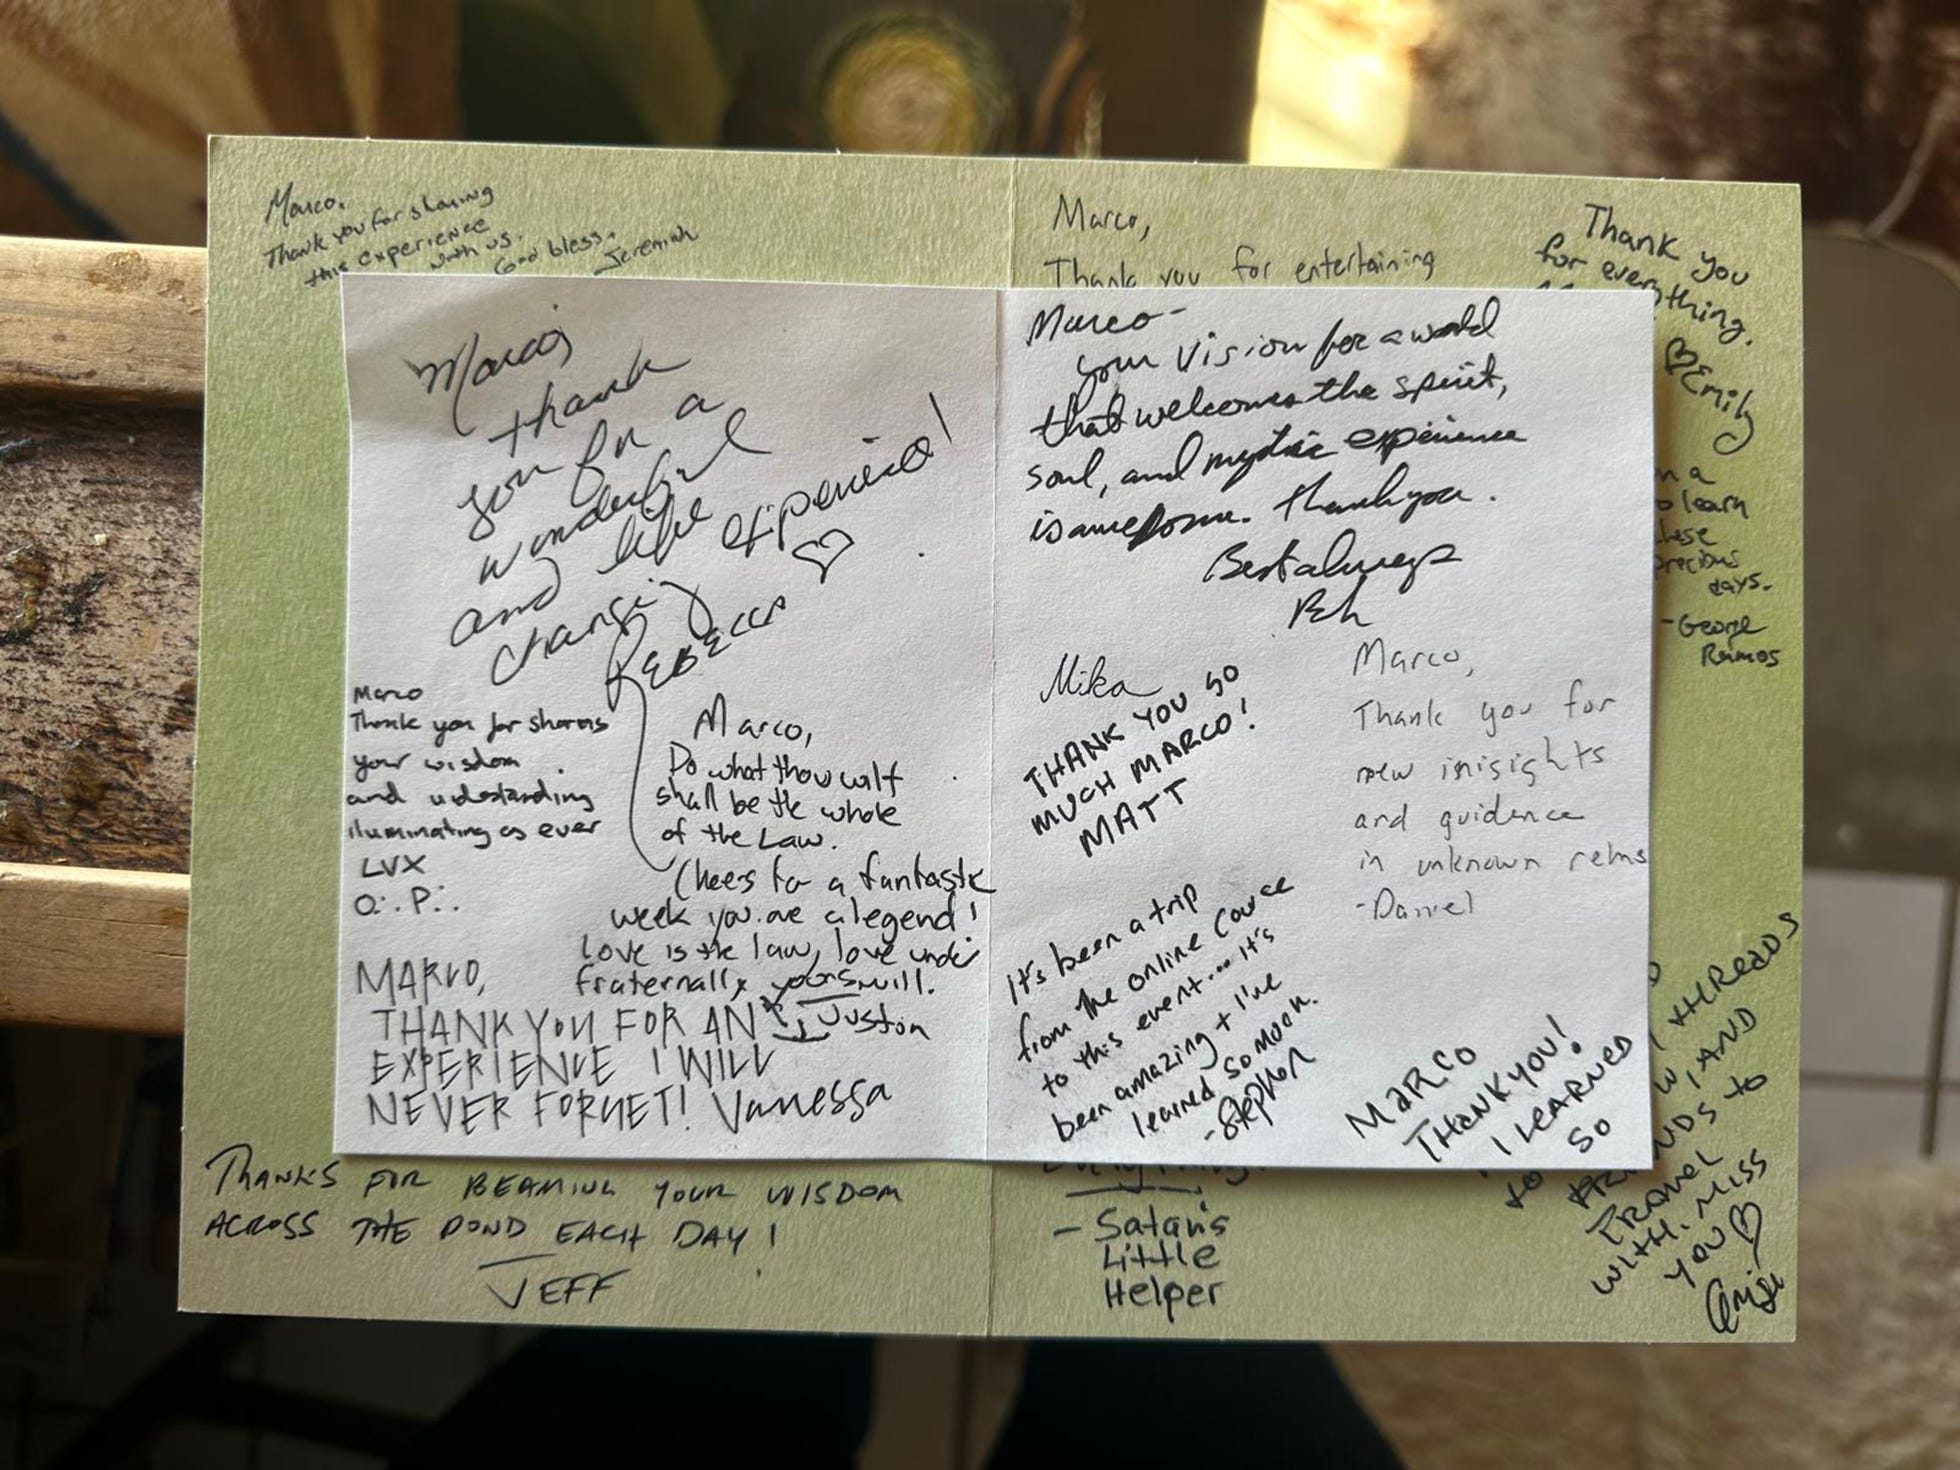 Marco,
Thank you for sharing
this experience
with us.
God bless.
Jeremiah
Marco,
Thank you for entertaining
Thank you
for everything.
♡Emily
Marco,
thank
you for a
wonderful
and life
changing experience!
♡
REBECCA
Marco
Thank you for sharing
your wisdom
and understanding
iluminating as ever
LVX
O∴P∴
Marco,
Do what thou wilt
shall be the whole
of the Law.
Cheers for a fantastic
week you are a legend!
Love is the law, love under
will.
fraternally yours
Juston
MARCO,
THANK YOU FOR AN
EXPERIENCE I WILL
NEVER FORGET! Vanessa
Marco-
your vision for a world
that welcomes the spirit,
soul, and mystic experience
is awesome. Thank you.
Best always
Mika
THANK YOU SO
MUCH MARCO!
MATT
Marco,
Thank you for
new inisights
and guidence
in unknown relms
-Daniel
It's been a trip
from the online course
to this event... it's
been amazing + I've
learned so much.
-Stephen
MARCO
THANK YOU!
I LEARNED
SO
a
learn
precious
days.
-George
Ramos
THREADS
AND
to
TRAVEL
WITH. MISS
YOU ♡
THANKS FOR BEAMING YOUR WISDOM
ACROSS THE POND EACH DAY!
JEFF
- Satan's
Little
Helper